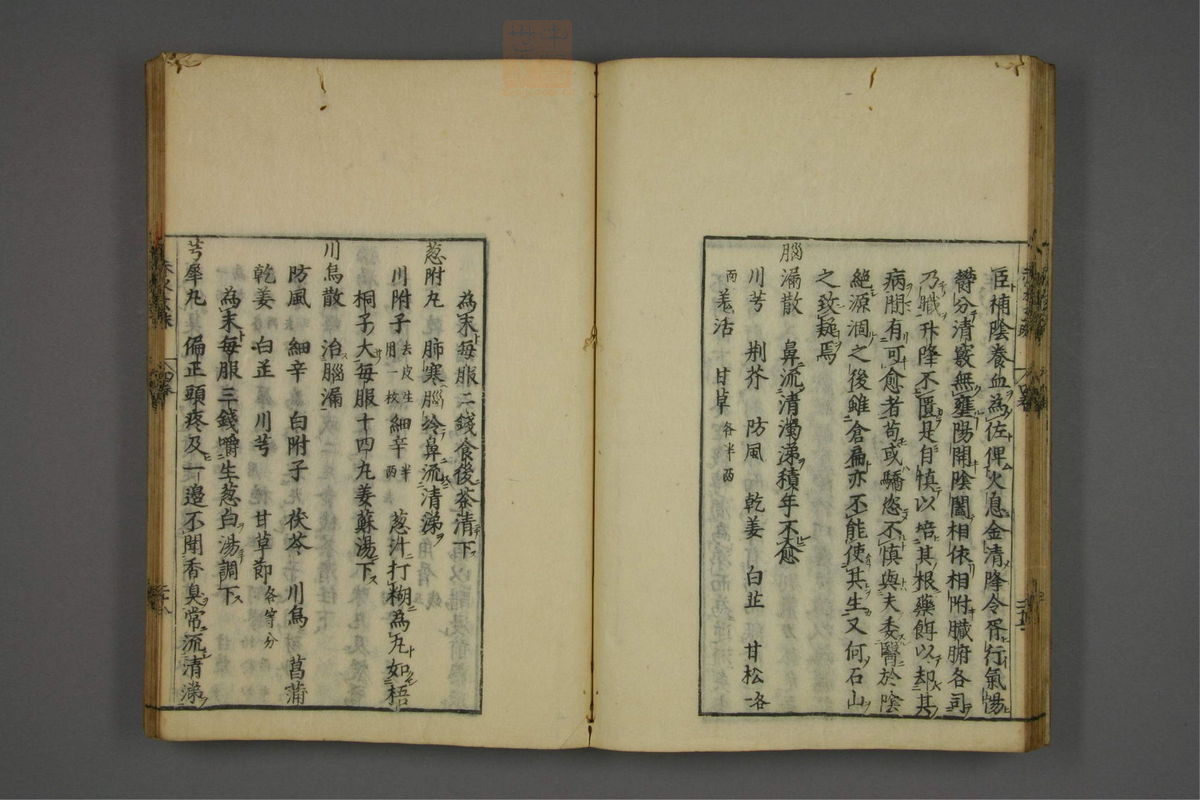 臣補陰養血為佐俾火息金清降令胥行氣陽
欝分清竅無壅陽開陰闔相依相附臓腑各司
乃職升降不匱是自慎以培其根藥餌以却其
病間有可愈者苟或驕恣不慎與夫委醫於陰
絶源涸之後雖倉扁亦不能使其生又何石山
之致疑焉
腦漏散 鼻流清濁涕積年不愈
川芎 荆芥 防風 乾姜 白芷 甘松各
兩 羌活 甘草各半兩
為末每服二錢食後茶清下
葱附丸 肺寒腦冷鼻流清涕
川附子去皮生用一枚 細辛半兩 葱汁打糊為丸如梧
桐子大每服十四丸姜蘇湯下
川烏散 治腦漏
防風 細辛 白附子 茯苓 川烏 菖蒲
乾姜 白芷 川芎 甘草節各等分
為末每服三錢嚼生葱白湯調下
芎犀丸 偏正頭疼及一邉不聞香臭常流清涕